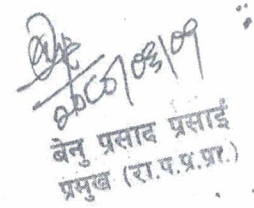 २०८१/०३/०१
बेनु प्रसाद प्रसाई
प्रमुख (रा.प.प्र.प्रा.)